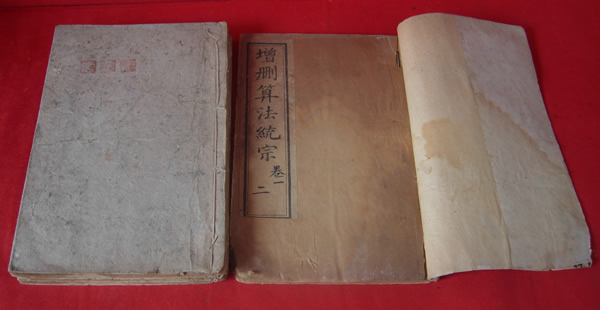 增刪算法統宗
卷一
二